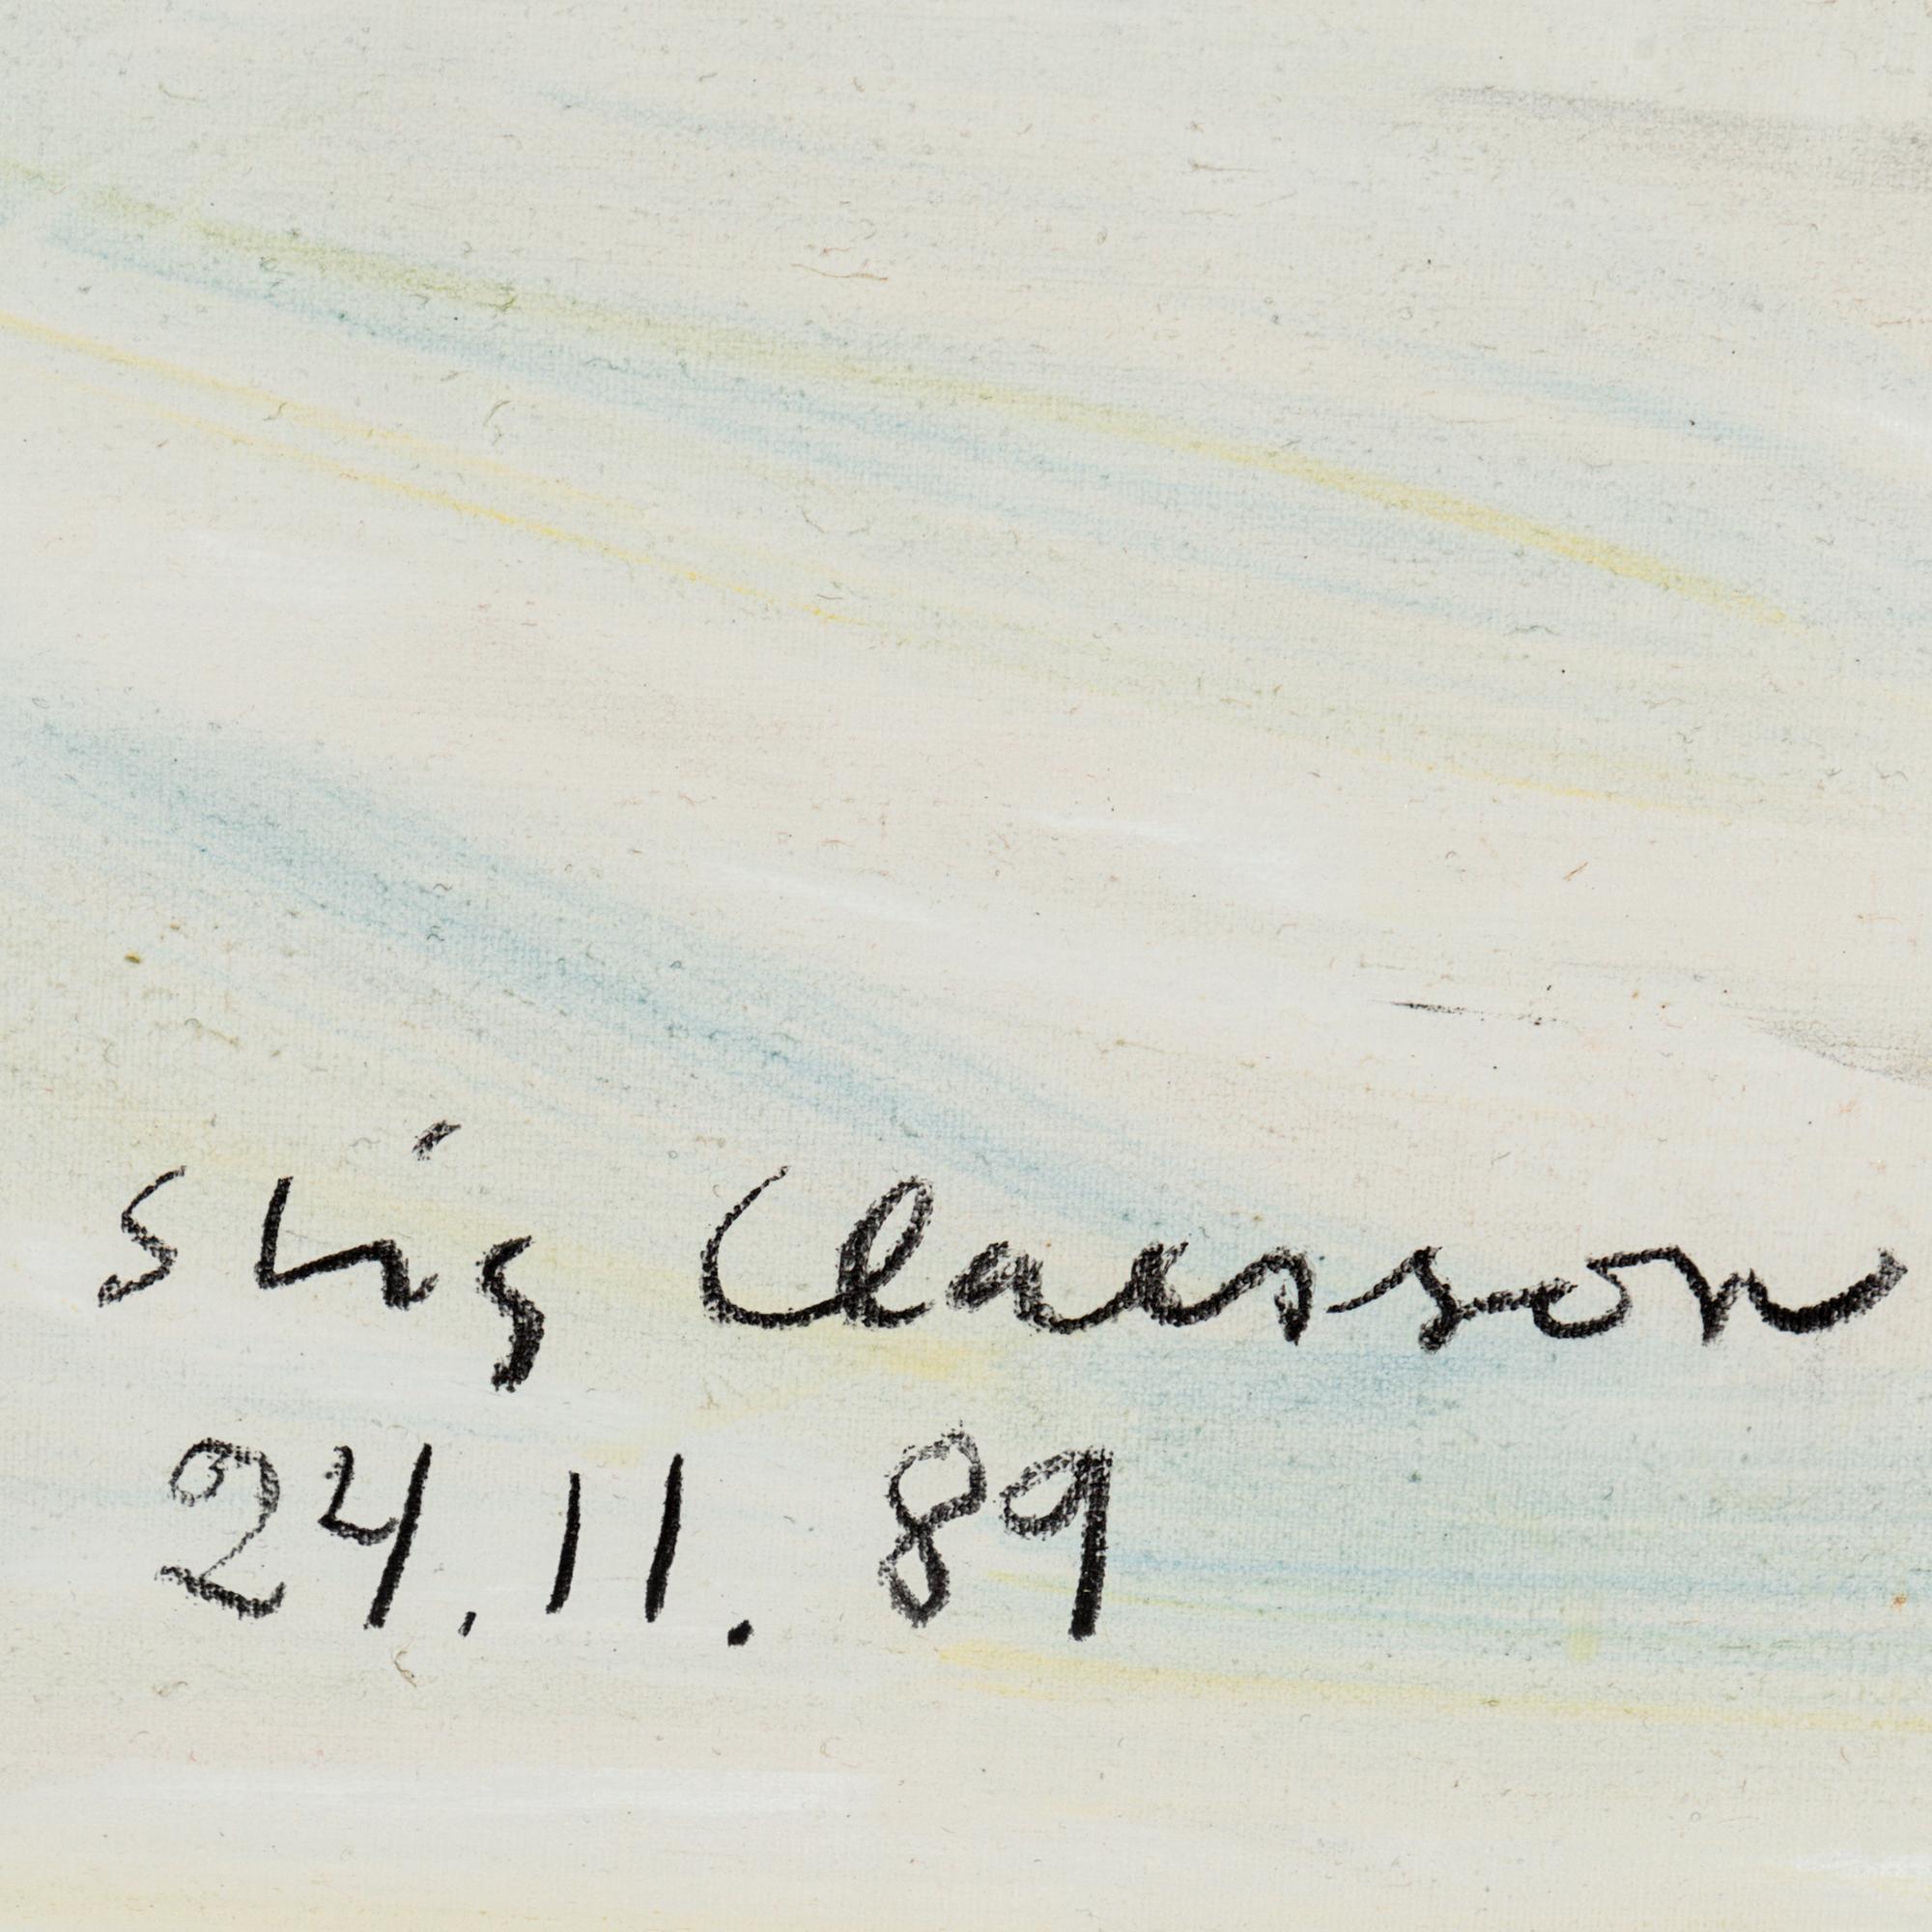 Stig Claesson
24.11.89